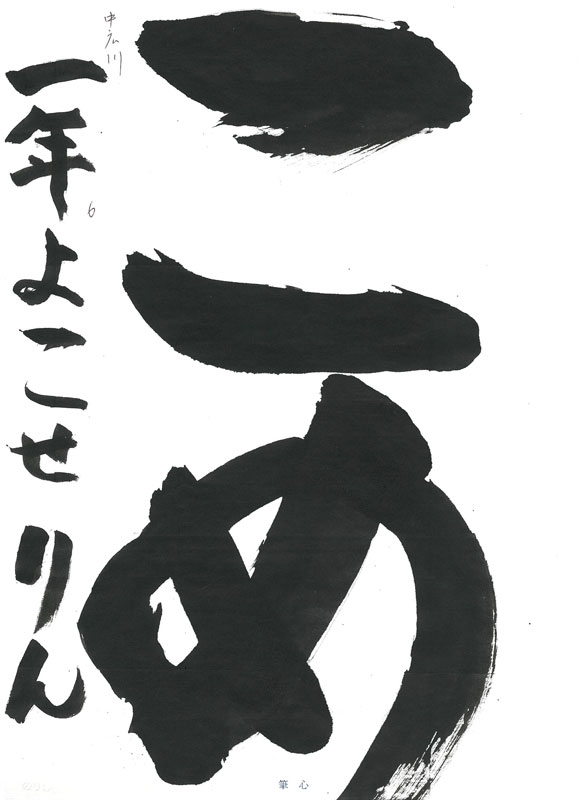 こめ
一年よこせりん
中広川
6
筆心